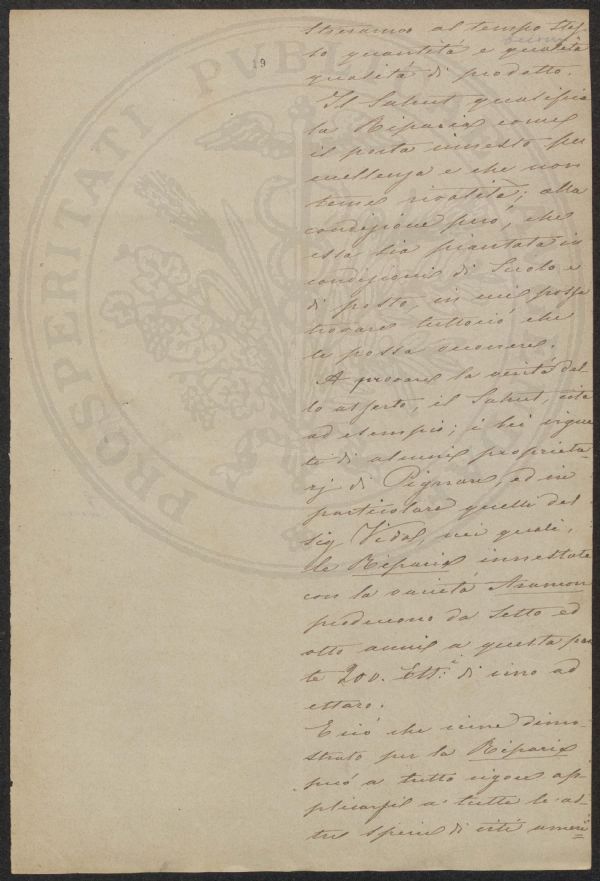 19
PROSPERITATI PVBLI
streremo al tempo stes-
so quantità e
qualità di prodotto.
Il Sahut qualifica
la Riparia come
il porta innesto per
eccellenza e che non
teme rivalità; alla
condizione però, che
essa sia piantata in
condizioni di Suolo e
di posto, in cui possa
trovare tuttociò che
le possa occorrere.
A prova la verità del-
lo asserto, il Sahut, cita
ad esempio; i bei vigne
ti di alcuni proprieta-
rj di Pignan, ed in
particolare quelli del
sig. Vidal, nei quali,
le Riparia innestate
con la varietà Aramon
producono da sette ed
otto anni a questa par
te 200. Ett. di vino ad
ettaro.
E ciò che viene dimo-
strato per la Riparia
può a tutto rigore ap-
plicarsi a tutte le al-
tre specie di viti ameri